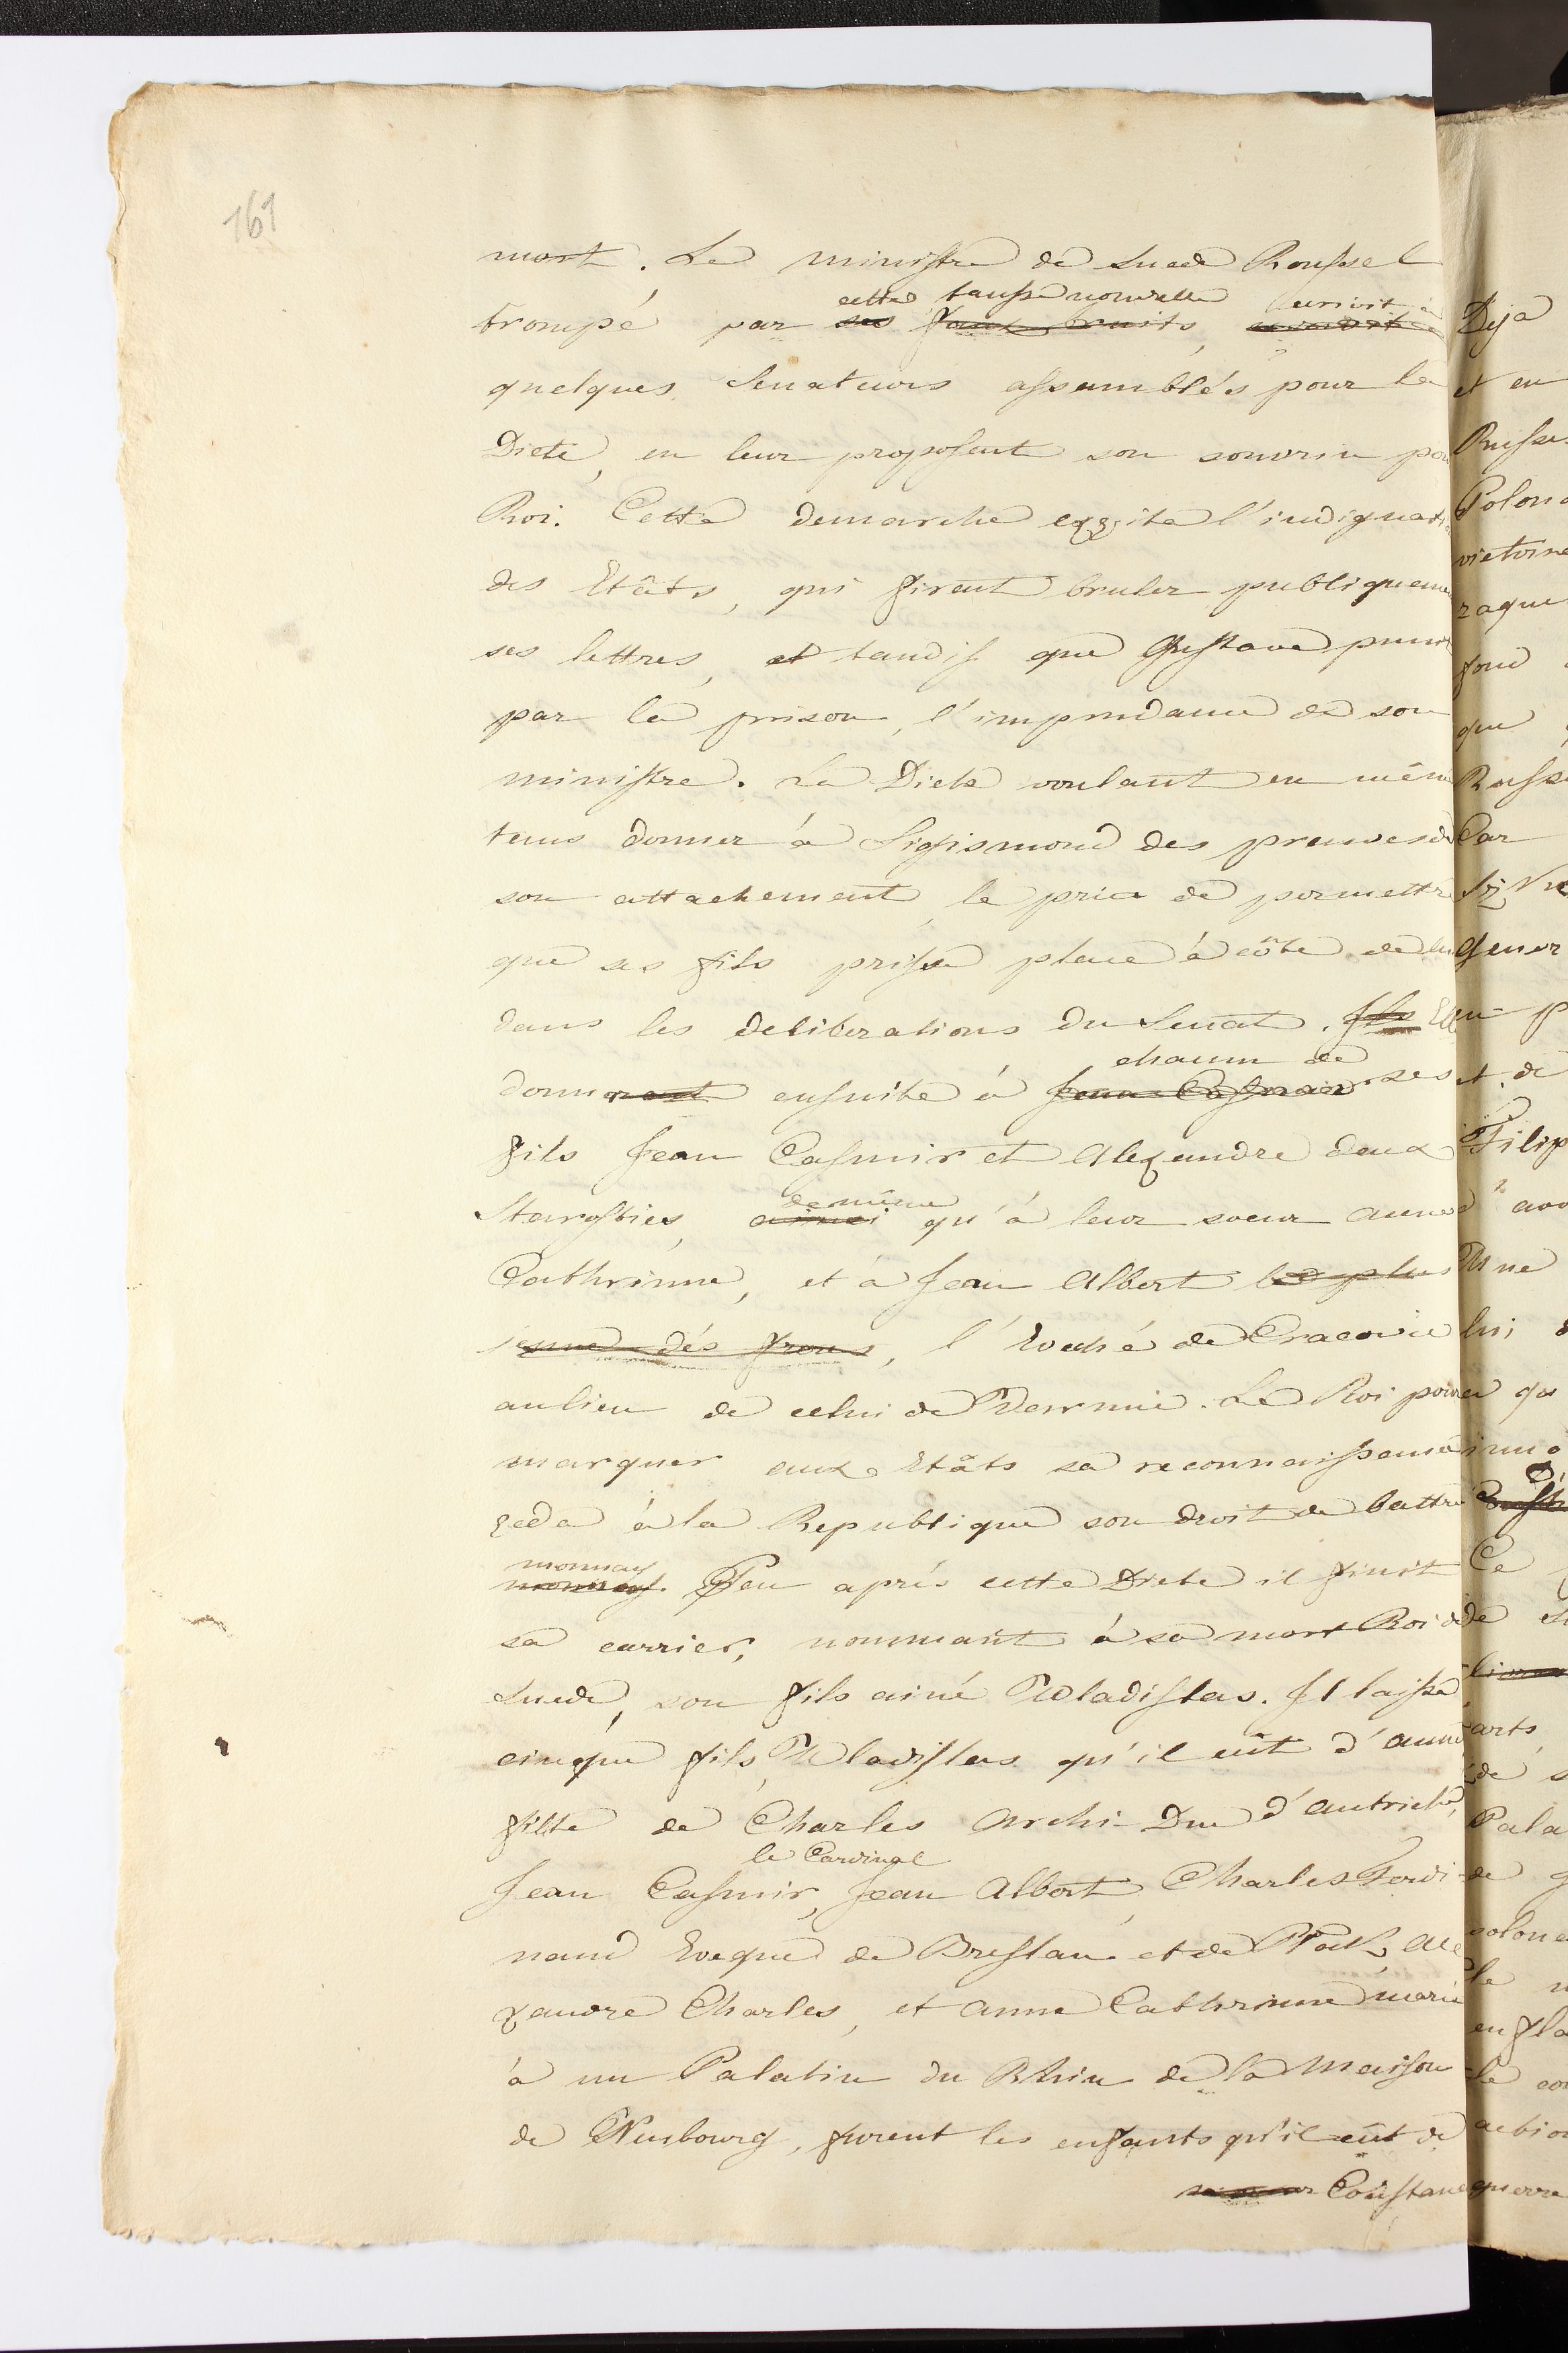 161
mort. Le ministre de Suede Roussel
cette fausse nouvelle ecrivit à
trompé par ses faux bruits,
quelques Senateurs assemblés pour la
Diete, en leur proposent son souvrin pou
Roi. Cette demarche exzita l'indignati
des Etâts, qui firent bruler publiqueme
ses lettres, et tandis que Gustave punit
par la prison, l'imprudance de son
ministre. La Diete voulant en même
tems donner à Sigismond des preuves de
son attachement, le pria de permettre
que ses fils prisse place à côte de lui
dans les deliberations du Senat. Ils Elle
chacun de
donnerent ensuite à Jean Casmir ses
fils Jean Casmir et Alexandre deux
de même
Starosties, ainsi qu'à leur soeur anne
Cathrinne, et à Jean Albert le plus
jeune dés frers, l'Eveché de Cracovie
aulieu de celui de Warmie. Le Roi pour
marquer aux Etâts sa reconnaissance
zeda à la Republique son droit de battre
monnay
monnay. Peu aprés cette Diete il finit
sa carrier, nommant à sa mort Roi de
Suede, son fils ainé Wladislas. Il laissa
cinque fils, Wladislas qu'il eût d'anne
fille de Charles Archi-Duc d'autriche,
le Cardinal
Jean Casmir, Jean Albert, Charles Ferdi-
nand Eveque de Breslau et de Plock, Ale
xandre Charles, et Anne Cathrinne marié
à un Palatin du Rhin de la Maison
de Neubourg, furent les enfants qu'il eût de
sa soeur Constance
Deja
et en
Russe
Polon
victoire
raque
fond
que
Russe
Car
gener
en p
et de
Filip
avo
Une
lui
qu
Ce
de
arts
de s
Pala
de g
polone
le
en fla
le con
action
guerre